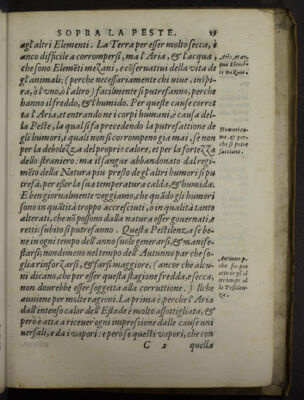 SOPRA LA PESTE. 19
agl'altri Elementi. La Terra per esser molto secca, è
anco difficile a corrompersi, ma l'Aria, & l'acqua,
che sono Elemēti mezani, e cōseruatiui della vita de
gl'animali; (perche necessariamente chi viue, inspi-
ra, ò l'vno, ò l'altro) facilmente si putrefanno, perche
hanno il freddo, & l'humido. Per queste cause corrot
ta l'Aria, et entrando ne i corpi humani, è causa del-
la Peste, la qual si fa precedendo la putrefattione de
gli humori, i quali non si corrompeno gia mai, se non
per la debolezza del proprio calore, et per la fortezza
dello straniero. ma il sangue abbandonato dal regi-
mēto della Natura piu presto de gl'altri humori si pu
trefà, per esser la sua temperatura calda, & humida.
E ben giornalmente veggiamo, che quādo gli humori
sono in quātità troppo accresciuti, o in qualità tanto
alterati, che nō possono dalla natura esser gouernati, e
retti; subito si putrefanno. Questa Pestilenza se be-
ne in ogni tempo dell'anno suole generarsi, & manife-
starsi; nondimeno nel tempo dell'Autunno par che so-
glia rinforzarsi, & farsi maggiore, (ancor che alcu-
ni dicano, che per esser questa stagione fredda, e secca,
non dourebbe esser soggetta alla corruttione.) Ilche
auuiene per molte ragioni. La prima è, perche l'Aria
dall'intenso calor dell'Estade è molto assottigliata, &
però è atta a riceuer ogni impressione dalle cause uni
uersali, e da i vapori: e però se questi vapori, che con
C 2 quella
Aria, et ac
qua Elemēti
mezani.
Humori co-
me, & per-
che si putre
facciano.
Autunno p-
che sia piu
atto de gl'al
tri tempi al
la Pestilen-
za.